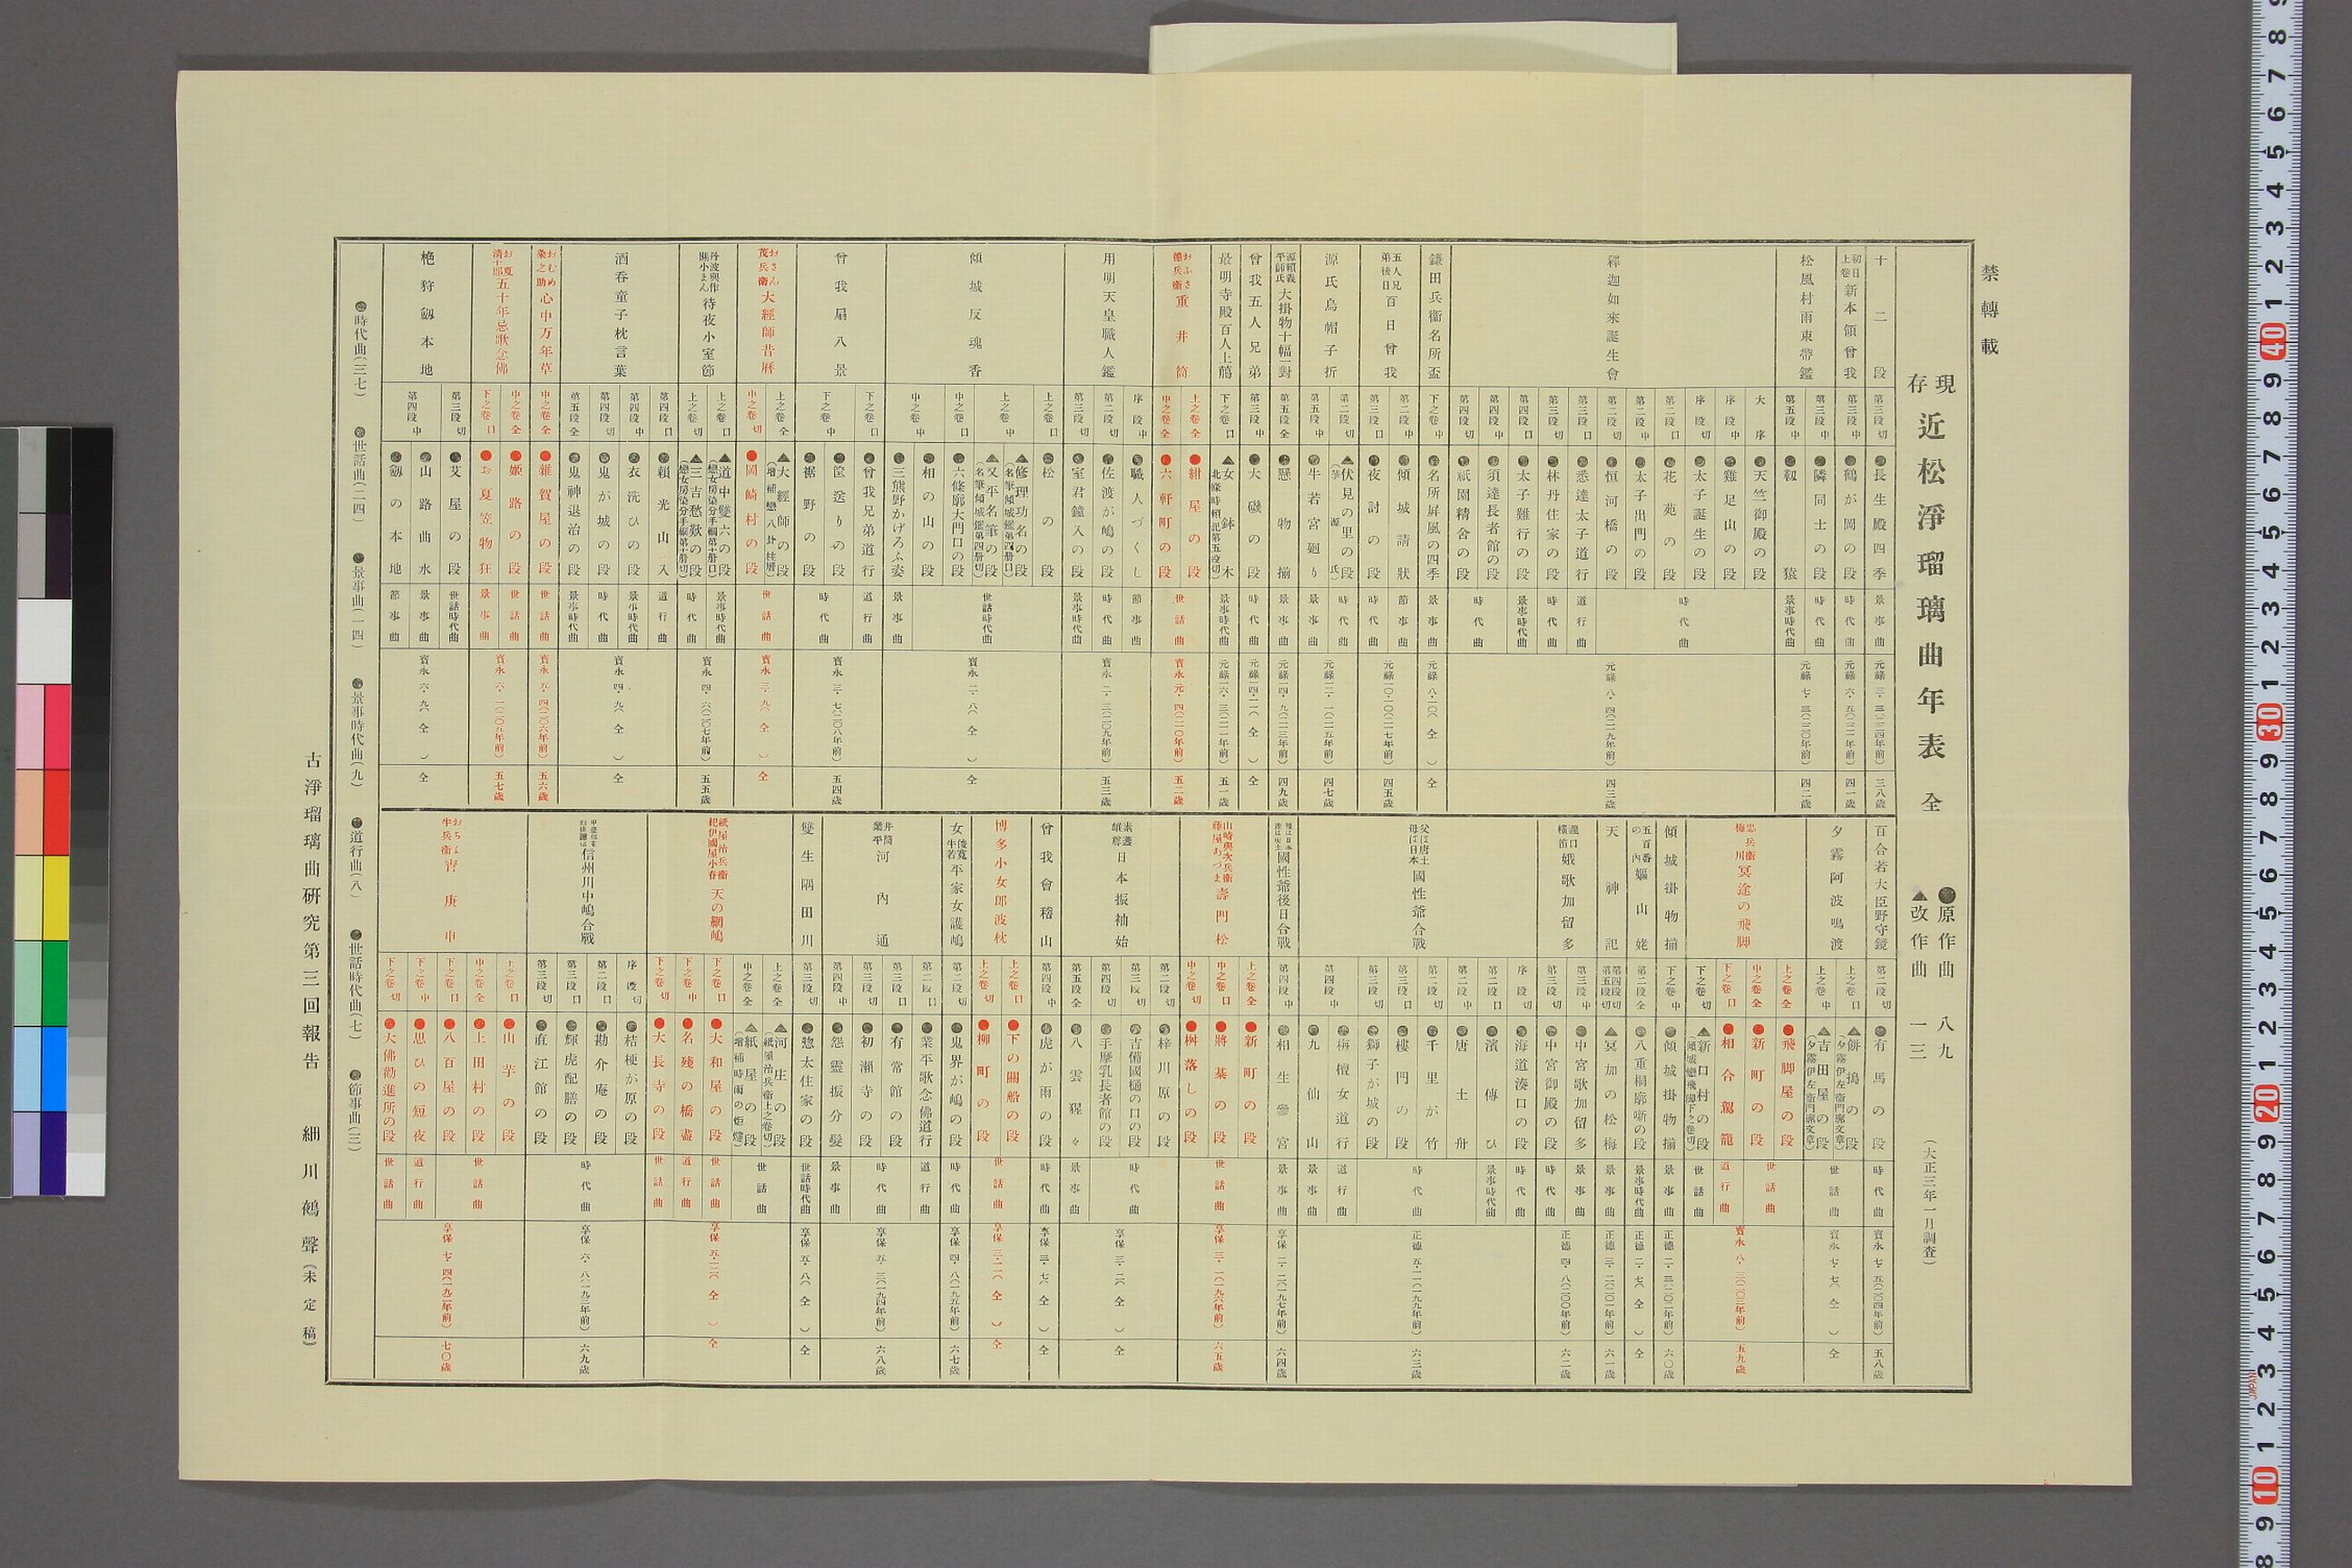 禁轉載
現存 近松淨瑠璃曲年表 全
●原作曲 八九
▲改作曲 一三
(大正三年一月調査)
十二段
第三段切
●長生殿四季
景事曲
三八歳
初日上卷 新本領曾我
第三段中
●鶴が岡の段
時代曲
四一歳
松風村雨束帶鑑
第三段中
●隣同士の段
時代曲
第五段中
●靱猿
景事時代曲
四二歳
釋迦如來誕生會
大序
●天竺御殿の段
序段中
●雞足山の段
序段切
●太子誕生の段
第二段口
●花苑の段
第二段中
●太子出門の段
第二段切
●恒河橋の段
時代曲
第三段口
●悉達太子道行
道行曲
第三段切
●林丹住家の段
時代曲
第四段口
●太子難行の段
景事時代曲
第四段中
●須達長者館の段
第四段切
●祇園精舍の段
時代曲
元祿八・四(二一九年前)
四三歳
鎌田兵衞名所盃
下之卷中
●名所屏風の四季
景事曲
元祿八・一〇(仝)
仝
五人兄弟後日 百日曾我
第二段中
●傾城請狀
節事曲
第三段口
●夜討の段
時代曲
元祿一〇・一〇(二一七年前)
四五歳
源氏烏帽子折
第二段切
▲伏見の里の段
時代曲
第五段中
●牛若宮廻り
景事曲
元祿一二・一(二一五年前)
四七歳
源賴義平師氏 大掛物十幅一對
第五段全
●懸物揃
景事曲
元祿一四・九(二一三年前)
四九歳
曾我五人兄弟
第三段中
●大磯の段
時代曲
仝
最明寺殿百人上﨟
下之卷口
▲女鉢木
(北條時賴記第五段切)
景事時代曲
元祿一六・三(二一一年前)
五一歳
おふさ德兵衞 重井筒
上之卷全
●紺屋の段
中之卷全
●六軒町の段
世話曲
寳永元・四(二一〇年前)
五二歳
用明天皇職人鑑
序段中
●職人づくし
節事曲
第二段切
●佐渡が嶋の段
時代曲
第三段切
●室君鐘入の段
景事時代曲
寳永二・三(二〇九年前)
五三歳
傾城反魂香
上之卷口
●松の段
上之卷中
▲修理功名の段
(名筆傾城鑑第四册口)
▲又平名筆の段
(名筆傾城鑑第四册切)
中之卷口
●六條廓大門口の段
世話時代曲
中之卷中
●相の山の段
●三熊野かげろふ姿
景事曲
寳永二・八(仝)
仝
曾我扇八景
下之卷口
●曾我兄弟道行
道行曲
下之卷中
●筐送りの段
●裾野の段
時代曲
寳永三・七(二〇八年前)
五四歳
おさん茂兵衞 大經師昔曆
上之卷全
▲大經師の段
(增補戀八卦柱曆)
中之卷切
●岡崎村の段
世話曲
寳永三・九(仝)
仝
丹波與作關小まん 待夜小室節
上之卷口
▲道中雙六の段
(戀女房染分手綱第十册口)
景事時代曲
上之卷切
▲三吉愁歎の段
(戀女房染分手綱第十册切)
時代曲
寳永四・六(二〇七年前)
五五歳
酒吞童子枕言葉
第四段口
●賴光山入
道行曲
第四段中
●衣洗ひの段
景事時代曲
第四段切
●鬼が城の段
時代曲
第五段全
●鬼神退治の段
景事時代曲
寳永四・九(仝)
仝
おむめ粂之助 心中万年草
中之卷全
●雜賀屋の段
世話曲
寳永五・四(二〇六年前)
五六歳
お夏清十郎 五十年忌歌念佛
中之卷全
●姬路の段
世話曲
下之卷口
●お夏笠物狂
景事曲
寳永六・一(二〇五年前)
五七歳
栬狩劔本地
第三段切
●艾屋の段
世話時代曲
第四段中
●山路曲水段
景事曲
●劔の本地
節事曲
寳永六・九(仝)
仝
百合若大臣野守鏡
第二段切
●有馬の段
時代曲
寳永七・五(二〇四年前)
五八歳
夕霧阿波鳴渡
上之卷口
▲餅搗の段
(夕霧伊左衞門廓文章)
上之卷中
▲吉田屋の段
(夕霧伊左衞門廓文章)
世話曲
寳永七・七(仝)
仝
忠兵衞梅川 冥途の飛脚
上之卷全
●飛脚屋の段
中之卷全
●新町の段
世話曲
下之卷口
●相合駕籠
道行曲
下之卷切
▲新口村の段
(傾城戀飛脚下之卷切)
世話曲
寳永八・三(二〇三年前)
五九歳
傾城掛物揃
下之卷中
●傾城掛物揃
景事曲
正德二・三(二〇二年前)
六〇歳
五百番の內 嫗山姥
第二段全
●八重桐廓噺の段
景事時代曲
正德二・七(仝)
仝
天神記
第四段切第五段切
▲冥加の松梅
景事曲
正德三・二(二〇一年前)
六一歳
瀧口橫笛 娥歌加留多
第三段中
●中宮歌加留多
景事曲
第三段切
●中宮御殿の段
時代曲
正德四・八(二〇〇年前)
六二歳
父は唐土母は日本 國性爺合戰
序段切
●海道湊口の段
時代曲
第二段口
●濱傳ひ
景事時代曲
第二段中
●唐土舟
第二段切
●千里が竹
第三段口
●樓門の段
第三段切
●獅子が城の段
時代曲
第四段中
●栴檀女道行
道行曲
●九仙山
景事曲
正德五・一一(一九九年前)
六三歳
國性爺後日合戰
第四段中
●相生參宮
景事曲
享保二・二(一九七年前)
六四歳
山崎與次兵衞藤屋あづま 壽門松
上之卷全
●新町の段
中之卷口
●將棊の段
中之卷切
●桝落しの段
世話曲
享保三・一(一九六年前)
六五歳
日本振袖始
第二段切
●梓川原の段
第三段切
●吉備國樋の口の段
第四段切
●手摩乳長者館の段
時代曲
第五段全
●八雲猩々
景事曲
享保三・二(仝)
仝
曾我會稽山
第四段中
●虎が雨の段
時代曲
享保三・七(仝)
仝
博多小女郎波枕
上之卷口
●下の關船の段
上之卷切
●柳町の段
世話曲
仝
俊寬牛若 平家女護嶋
第二段切
●鬼界が嶋の段
時代曲
享保四・八(一九五年前)
六七歳
井筒業平 河內通
第二段口
●業平歌念佛道行
道行曲
第三段口
●有常館の段
第三段切
●初瀨寺の段
時代曲
第四段中
●怨靈振分髮
景事曲
享保五・三(一九四年前)
六八歳
雙生隅田川
第三段切
●惣太住家の段
世話時代曲
享保五・八(仝)
仝
紙屋治兵衞紀伊國屋小春 天の網嶋
上之卷全
▲河庄の段
(紙屋治兵衞上之卷切)
中之卷全
▲紙屋の段
(增補時雨の炬燵)
世話曲
下之卷口
●大和屋の段
世話曲
下之卷中
●名殘の橋盡
道行曲
下之卷切
●大長寺の段
世話曲
享保五・一二(仝)
仝
信州川中嶋合戰
序段切
●桔梗が原の段
第二段口
●勘介庵の段
第三段口
●輝虎配膳の段
第三段切
●直江館の段
時代曲
享保六・八(一九三年前)
六九歳
おちよ半兵衞 宵庚申
上之卷口
●山芋の段
中之卷全
●上田村の段
下之卷口
●八百屋の段
世話曲
下之卷中
●思ひの短夜
道行曲
下之卷切
●大佛勸進所の段
世話曲
享保七・四(一九二年前)
七〇歳
●時代曲(三七) ●世話曲(二四) ●景事曲(一四) ●景事時代曲(九) ●道行曲(八) ●世話時代曲(七) ●節事曲(三)
古淨瑠璃曲研究第三回報告 細川鵺聲(未定稿)